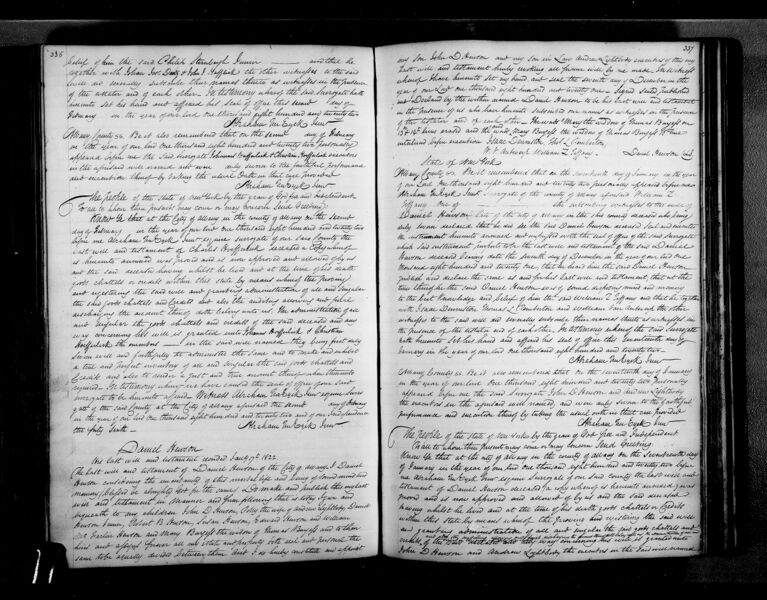 336
belief of him the said Childs Sternbergh Junior and that he
together with Johan Jost Dietz & John I. Huffilck the other witnesses to the said
will did severally subscribe their names thereto as witnesses in the presence
of the testator and of each other. In testimony whereof the said Surrogate hath
hereunto set his hand and affixed his seal of office this second day of
February in the year of our Lord one thousand eight hundred and twenty two
Abraham Ten Eyck Junr
Albany County ss. Be it also remembered that on the second day of February
in the year of our Lord one thousand eight hundred and twenty two personally
appeared before me the said surrogate Johannes Huffilck & Christian Huffilck executors
in the aforesaid will named and were duly sworn to the faithful performance
and execution thereof by taking the usual oath in that case provided
Abraham Ten Eyck Junr
The People of the State of New York by the grace of God free and Independent
To all to whom these presents may come or may concern Send Greeting:
Know Ye that at the City of Albany in the county of Albany on the second
day of February in the year of our Lord one thousand eight hundred and twenty two
before me Abraham Ten Eyck Junr Esquire surrogate of our said County the
last will and testament of deceased a copy whereof
is hereunto annexed was proved and is now approved and allowed of by us
and the said deceased having whilst he lived and at the time of his death
goods chattels or credits within this state by means whereof the proving
and registering the said will and granting administration of all and singular
the said goods chattels and credits and also the auditing allowing and final
discharging the account thereof doth belong unto us. The administration of all
and singular the goods chattels and credits of the said deceased and any
way concerning his will is granted unto Johannes Huffilck & Christian
Huffilck the executors in the said will named they being first duly
sworn well and faithfully to administer the same and to make and exhibit
a true and perfect inventory of all and singular the said goods chattels and
credits and also to render a just and true account thereof when thereunto
required. In testimony whereof we have caused the seal of office of our said
surrogate to be hereunto affixed. Witness Abraham Ten Eyck Junr esquire surro
gate of the said County at the City of Albany aforesaid the second day of February
in the year of our Lord one thousand eight hundred and twenty two and of our Independence
the forty sixth
Abraham Ten Eyck Junr
Daniel Hewson
His last will and testament recorded Jany 17th 1822.
The last will and testament of Daniel Hewson of the City of Albany I Daniel
Hewson considering the uncertainty of this mortal life and being of sound mind and
memory blessed be almighty God for the same Do make and publish this my last
will and testament in manner and form following that is to say I give and
bequeath to my children John D. Hewson, Polly the wife of Andrew Lightbody Daniel
Hewson Junior, Robert B. Hewson, Susan Hewson, Edward Hewson and William
Hewson and Mary Burgess the widow of Thomas Burgess and to their
heirs and assigns forever all my estate and property both real and personal the
same to be equally divided between them And I do hereby constitute and appoint
337
my Son John D Hewson and my Son in Law Andrew Lightbody executors of this my
last will and testament hereby revoking all former wills by me made. In witness
whereof I have hereunto set my hand and seal the seventh day of December in the
year of our Lord one thousand eight hundred and twenty one. Signed sealed published
and declared by the within named Daniel Hewson to be his last will and testament
in the presence of us who have hereunto subscribed our names as witnesses in the presence
of the testator and of each other.
Isaac Denniston, Thos. L. Pemberton,
William Z. Tiffany.
Daniel Hewson
State of New York
Albany County ss. Be it remembered that on the seventeenth day of January in the year
of our Lord one thousand eight hundred and twenty two personally appeared before me
Abraham Ten Eyck Junr surrogate of the county of Albany William Z.
Tiffany one of the subscribing witnesses to the will of
Daniel Hewson late of the city of Albany in the said county deceased who being
duly sworn declared that he did see the said Daniel Hewson deceased sign and execute
the instrument hereunto annexed
which said instrument purports to be the last will and testament of the said Daniel
Hewson deceased bearing date the seventh day of December in the year of our Lord one
thousand eight hundred and twenty one, that he heard him the said Daniel Hewson
publish and declare the same as and for his last will and testament, that at the
time thereof he the said Daniel Hewson was of sound disposing mind and memory
to the best knowledge and belief of him the said William Z. Tiffany and that he together
with Isaac Denniston Thomas L. Pemberton and William Van Antwerp the other
witnesses to the said will did severally subscribe their names thereto as witnesses in
the presence of the testator and of each other. In testimony whereof the said Surrogate
hath hereunto set his hand and affixed his seal of office this seventeenth day of
January in the year of our Lord one thousand eight hundred and twenty two
Abraham Ten Eyck Junr
Albany County ss. Be it also remembered that on the seventeenth day of January
in the year of our Lord one thousand eight hundred and twenty two personally
appeared before me the said surrogate John D. Hewson and Andrew Lightbody
the executors in the aforesaid will named, and were duly sworn to the faithful
performance and execution thereof by taking the usual oath in that case provided
Abraham Ten Eyck Junr
The People of the State of New York by the grace of God free and Independent
To all to whom these presents may come or may concern Send Greeting:
Know Ye that at the city of Albany in the county of Albany on the seventeenth day
of January in the year of our Lord one thousand eight hundred and twenty two before
me Abraham Ten Eyck Junr esquire surrogate of our said county the last will and
testament of Daniel Hewson deceased (a copy whereof is hereunto annexed) was
proved and is now approved and allowed of by us and the said deceased
having whilst he lived and at the time of his death goods chattels or credits
within this state by means whereof the proving and registering the said will
and granting administration of all and singular the said goods chattels and
credits of the said deceased and any way concerning his will is granted unto
John D Hewson and Andrew Lightbody the executors in the said will named